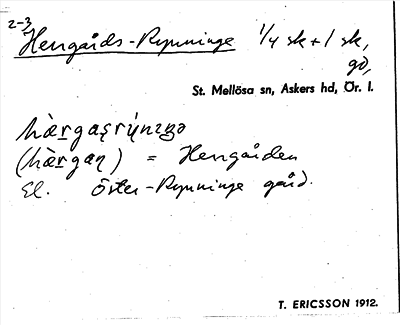 2-3
Herrgårds-Rynninge 1/4 sk + 1 sk,
gd,
St. Mellösa sn, Askers hd, Ör. l.
hàrgaṣrýniŋə
(hàrgaṇ) = Herrgården
El. Öster-Rynninge gård.
T. ERICSSON 1912.